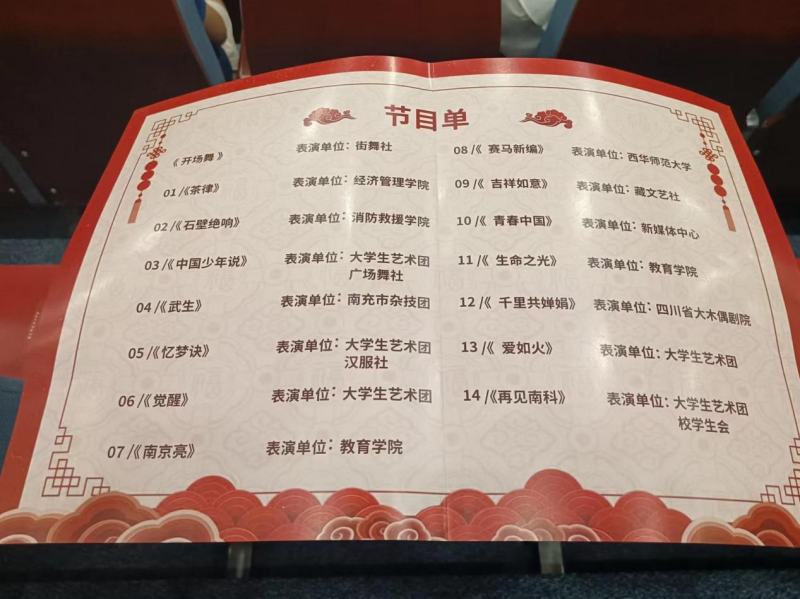 节目单
《 开场舞 》 表演单位：街舞社
01 /《茶律》 表演单位：经济管理学院
02 /《石壁绝响》 表演单位：消防救援学院
03 /《中国少年说》 表演单位：大学生艺术团
广场舞社
04 /《武生》 表演单位：南充市杂技团
05 /《忆梦诀》 表演单位：大学生艺术团
汉服社
06 /《觉醒》 表演单位：大学生艺术团
07 /《南京亮》 表演单位：教育学院
08 /《 赛马新编》 表演单位：西华师范大学
09 /《 吉祥如意》 表演单位：藏文艺社
10 /《 青春中国》 表演单位：新媒体中心
11 /《 生命之光》 表演单位：教育学院
12 /《 千里共婵娟》 表演单位：四川省大木偶剧院
13 /《 爱如火》 表演单位：大学生艺术团
14 /《再见南科》 表演单位：大学生艺术团
校学生会